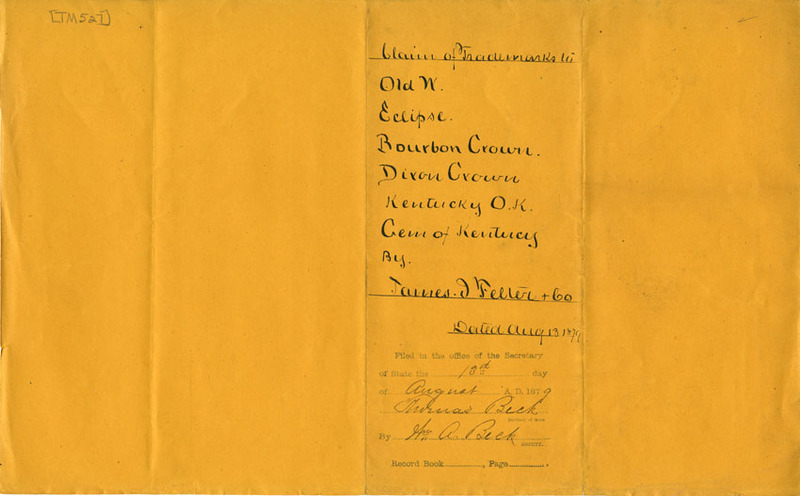 [TM527]
Claim of Trademarks to
Old W.
Eclipse.
Bourbon Crown.
Dixon Crown
Kentucky O.K.
Gem of Kentucky
By.
James. I Felter & Co
Dated Aug 13 1879
Filed in the office of the Secretary
of State the 13th day
of August A.D. 1879
Thomas Beck
Secretary of State
By Wm A. Beck
DEPUTY.
Record Book , Page .